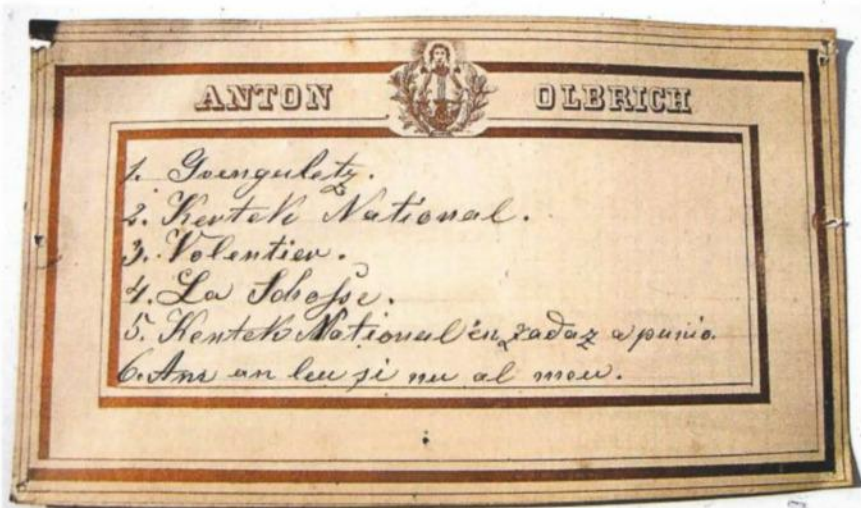 ANTON OLBRICH
1. Goengulatz.
2. Kentek National.
3. Volentier.
4. La Schosse.
5. Kentek National în zadaz a punio.
6. Am un leu și nu al meu.